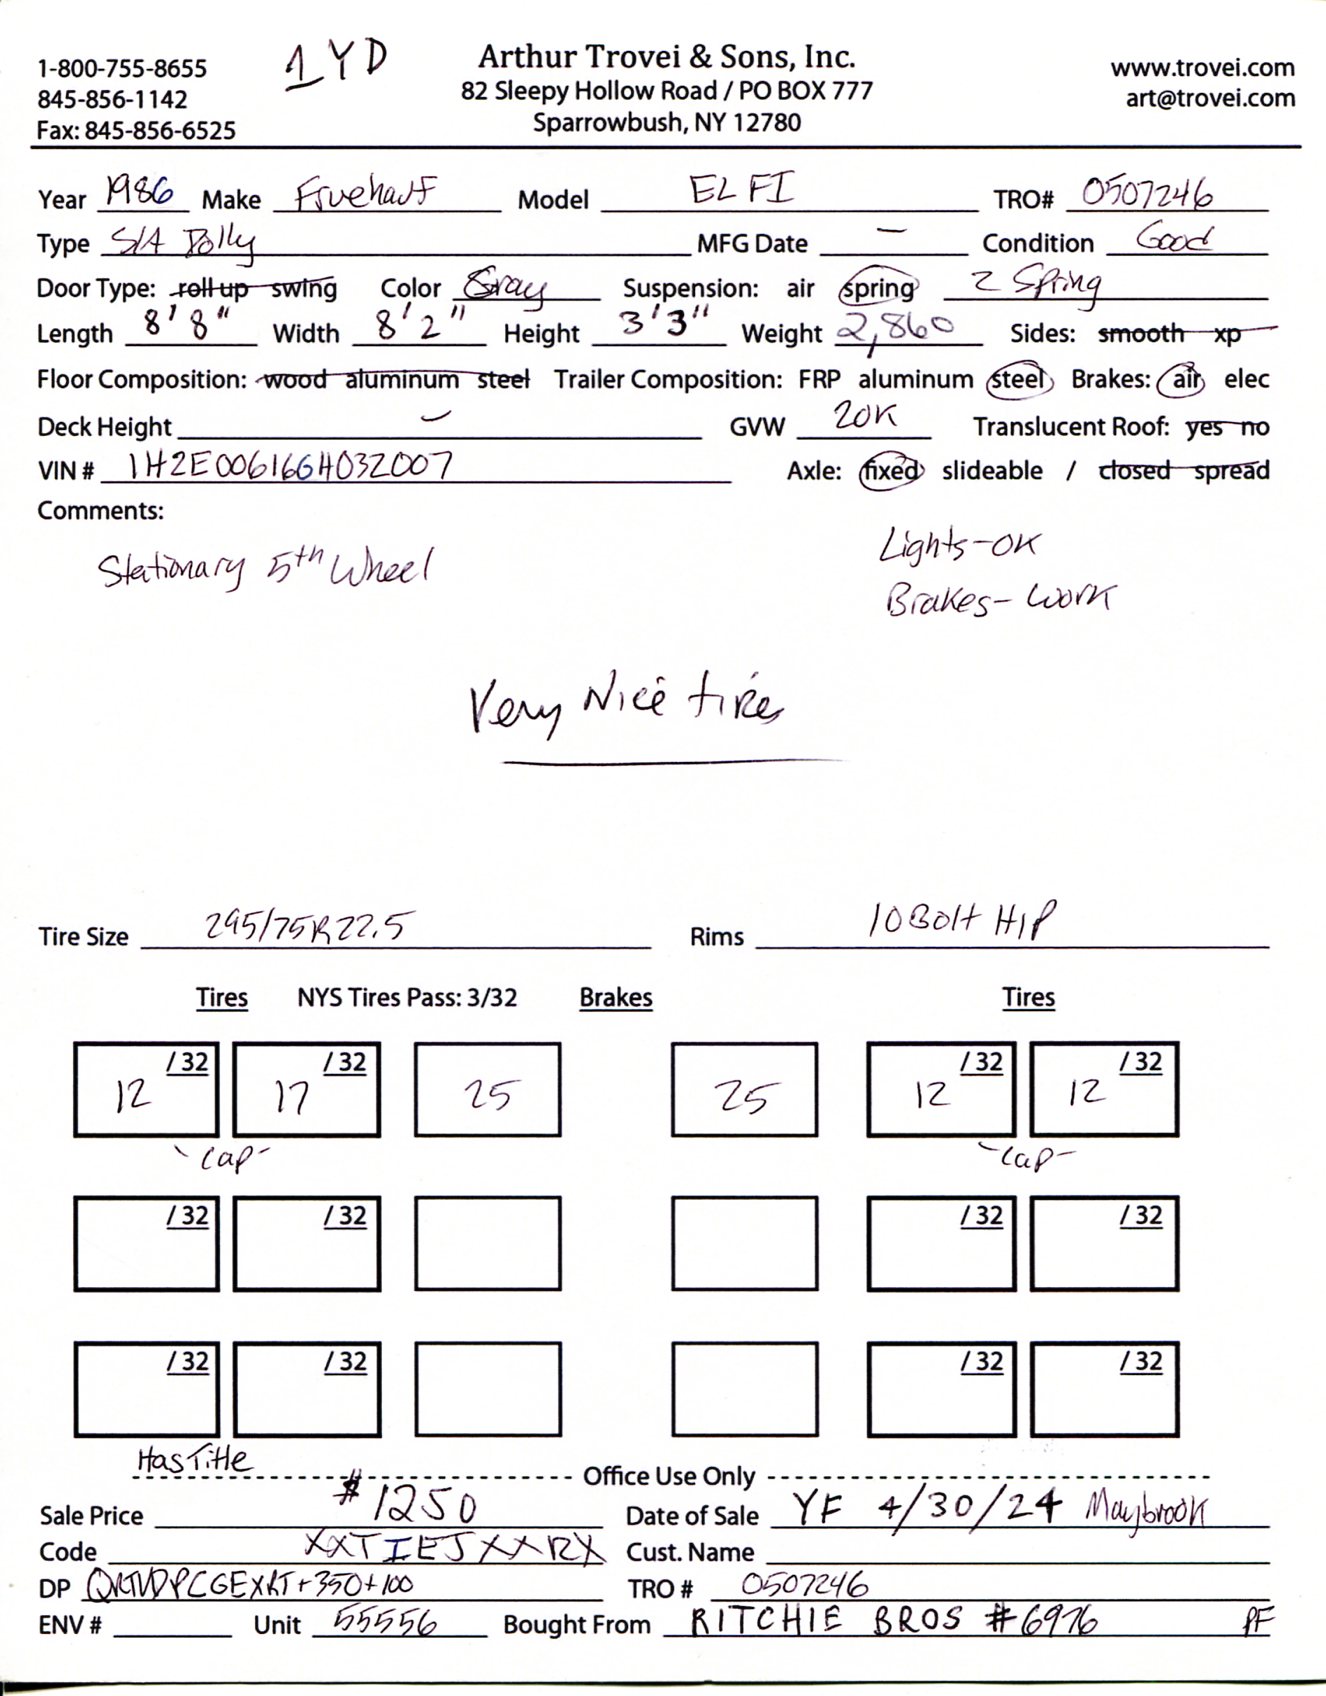 1-800-755-8655
845-856-1142
Fax: 845-856-6525
1YD
Arthur Trovei & Sons, Inc.
82 Sleepy Hollow Road / PO BOX 777
Sparrowbush, NY 12780
www.trovei.com
art@trovei.com
Year 1986 Make Fruehauf Model ELFI TRO# 0507246
Type S/A Dolly MFG Date — Condition Good
Door Type: roll up swing Color Gray Suspension: air spring 2 Spring
Length 8'8" Width 8'2" Height 3'3" Weight 2,860 Sides: smooth xp
Floor Composition: wood aluminum steel Trailer Composition: FRP aluminum steel Brakes: air elec
Deck Height — GVW 20K Translucent Roof: yes no
VIN # 1H2E00616GH032007 Axle: fixed slideable / closed spread
Comments:
Stationary 5th Wheel
Lights-OK
Brakes-Work
Very Nice tires
Tire Size 295/75R22.5 Rims 10 Bolt H/P
Tires NYS Tires Pass: 3/32 Brakes Tires
12 /32 17 /32 25 25 12 /32 12 /32
-Cap- -Cap-
/32 /32 /32 /32
/32 /32 /32 /32
Has Title
Office Use Only
Sale Price $1250 Date of Sale YF 4/30/24 Maybrook
Code XXTIEJXXRX Cust. Name
DP +350+100 TRO # 0507246
ENV # Unit 55556 Bought From RITCHIE BROS #6976 PF